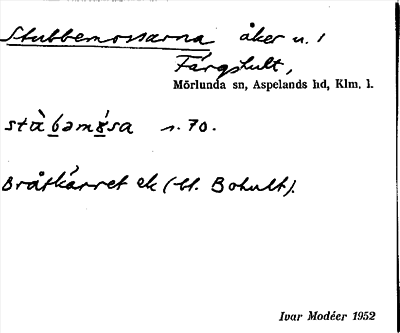 Stubbemossarna åker u. /
Färgshult,
Mörlunda sn, Aspelands hd, Klm. l.
s. 70.
Bråtkärret ek (bl. Bohult).
Ivar Modéer 1952